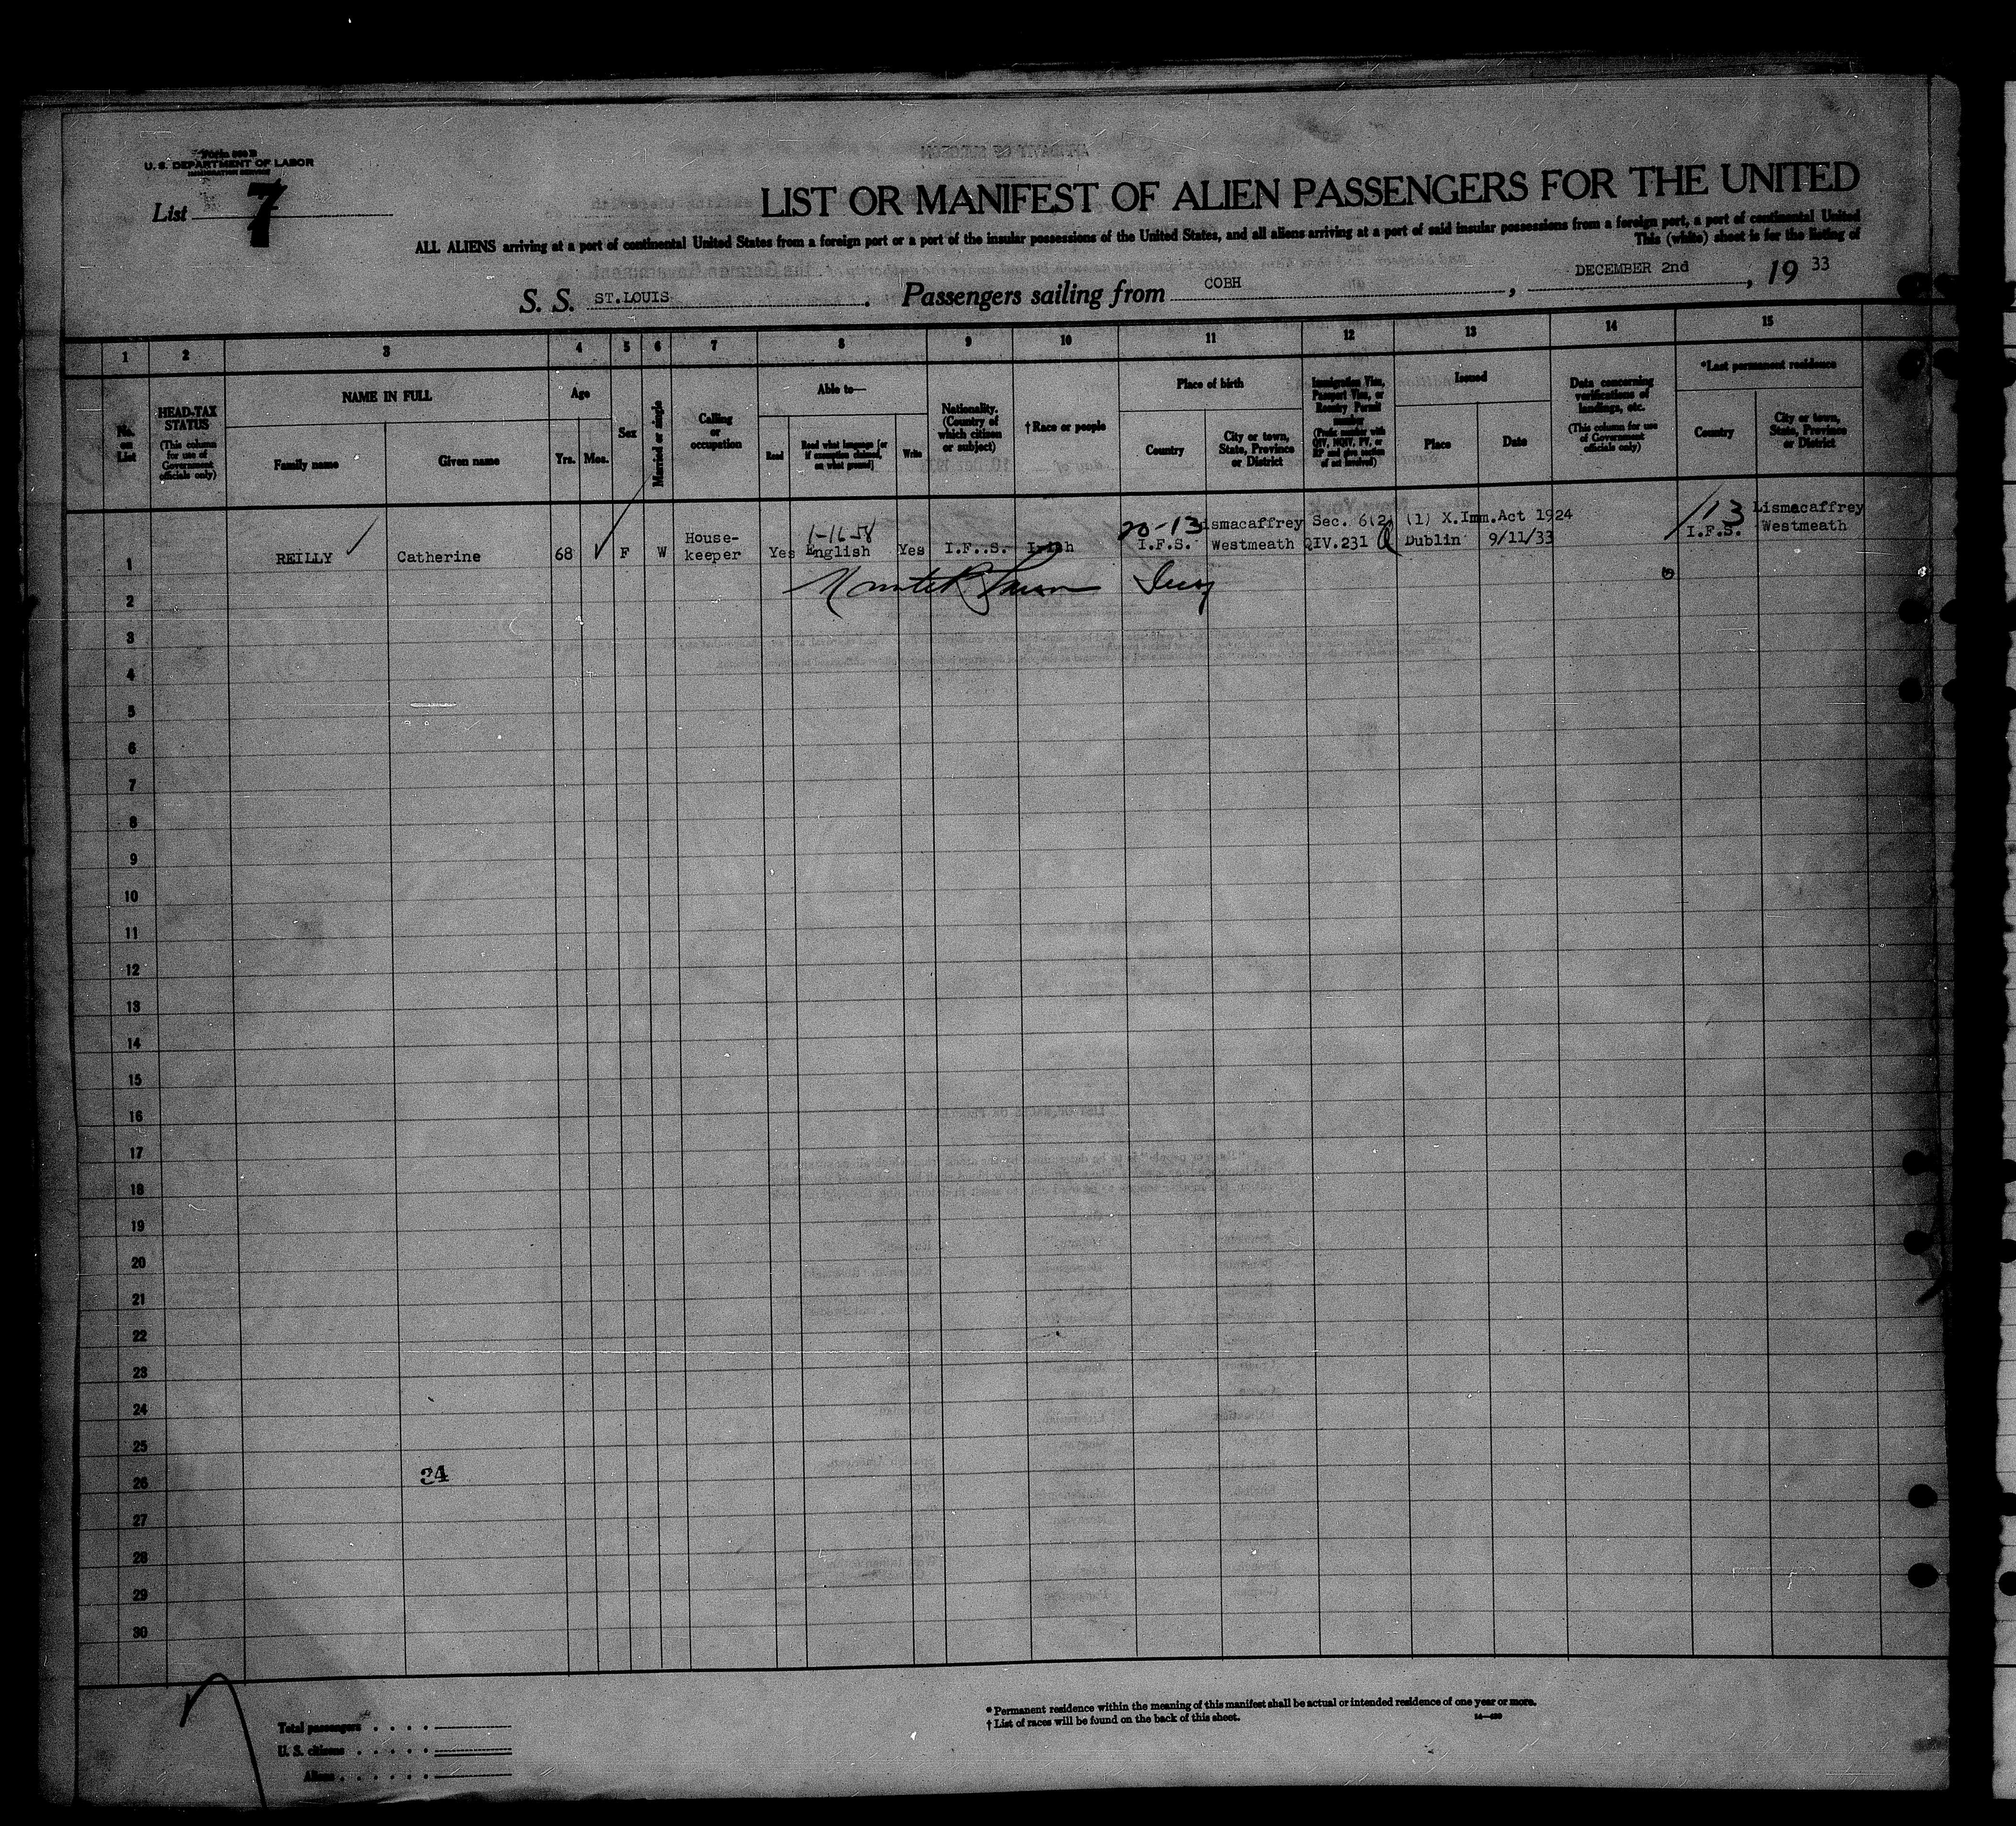 Form 500 B
U. S. DEPARTMENT OF LABOR
IMMIGRATION SERVICE
List 7
LIST OR MANIFEST OF ALIEN PASSENGERS FOR THE UNITED
ALL ALIENS arriving at a port of continental United States from a foreign port or a port of the insular possessions of the United States, and all aliens arriving at a port of said insular possessions from a foreign port, a port of continental United
This (white) sheet is for the listing of
S. S. ST.LOUIS. Passengers sailing from COBH, DECEMBER 2nd, 19 33
1 2 3 4 5 6 7 8 9 10 11 12 13 14 15
No. on List
HEAD-TAX STATUS
(This column for use of Government officials only)
NAME IN FULL
Family name
Given name
Age
Yrs. Mos.
Sex
Married or single
Calling or occupation
Able to—
Read
Read what language [or if exemption claimed, on what ground]
Write
Nationality. (Country of which citizen or subject)
† Race or people
Place of birth
Country
City or town, State, Province or District
Immigration Visa, Passport Visa, or Reentry Permit number
(Prefix number with QIV, NQIV, PV, or RP and give section of act involved)
Issued
Place
Date
Data concerning verifications of landings, etc.
(This column for use of Government officials only)
*Last permanent residence
Country
City or town, State, Province or District
20-13 ismacaffrey Sec. 6(2) (1) X.Imm.Act 1924 13 Lismacaffrey
1 REILLY Catherine 68 F W House-keeper Yes English Yes I.F..S. Irish I.F.S. Westmeath QIV.231 Dublin 9/11/33 I.F.S. Westmeath
2
3
4
5
6
7
8
9
10
11
12
13
14
15
16
17
18
19
20
21
22
23
24
25
34
26
27
28
29
30
Total passengers . . . .
U. S. citizens . . . . .
Aliens . . . . . .
* Permanent residence within the meaning of this manifest shall be actual or intended residence of one year or more.
† List of races will be found on the back of this sheet.